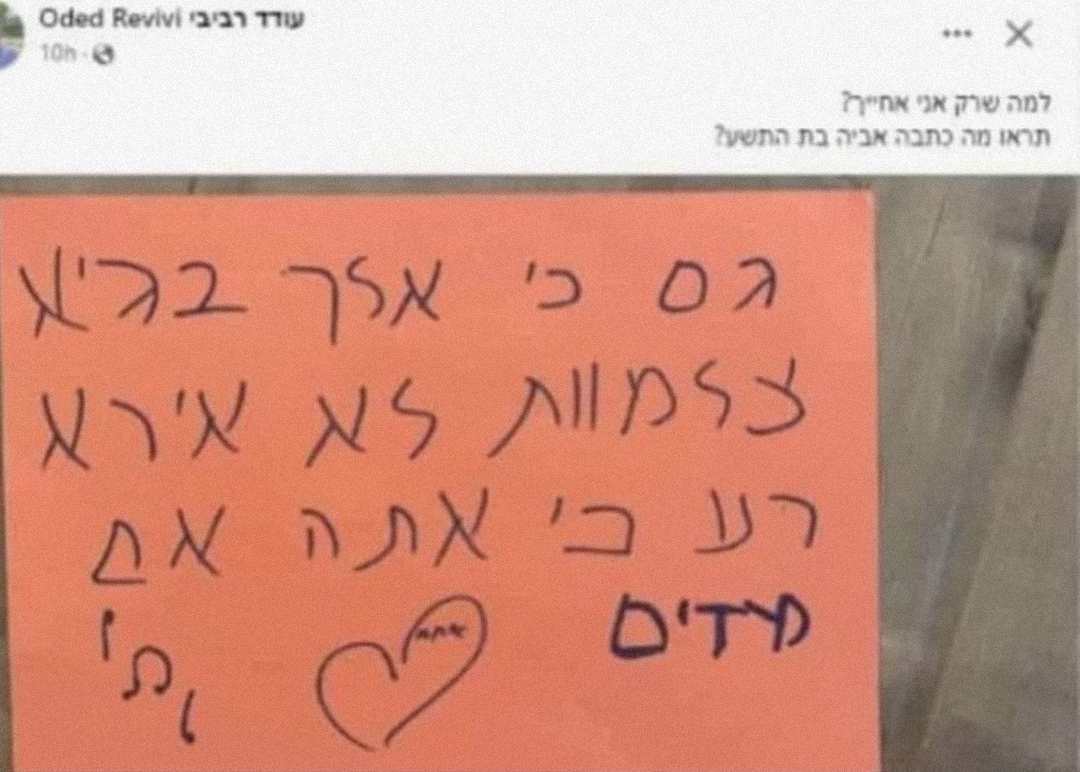 Oded Revivi עודד רביבי
10h
למה שרק אני אחייך?
תראו מה כתבה אביה בת התשע?
גם כי אלך בגיא
צלמוות לא אירא
רע כי אתה אם
מדים